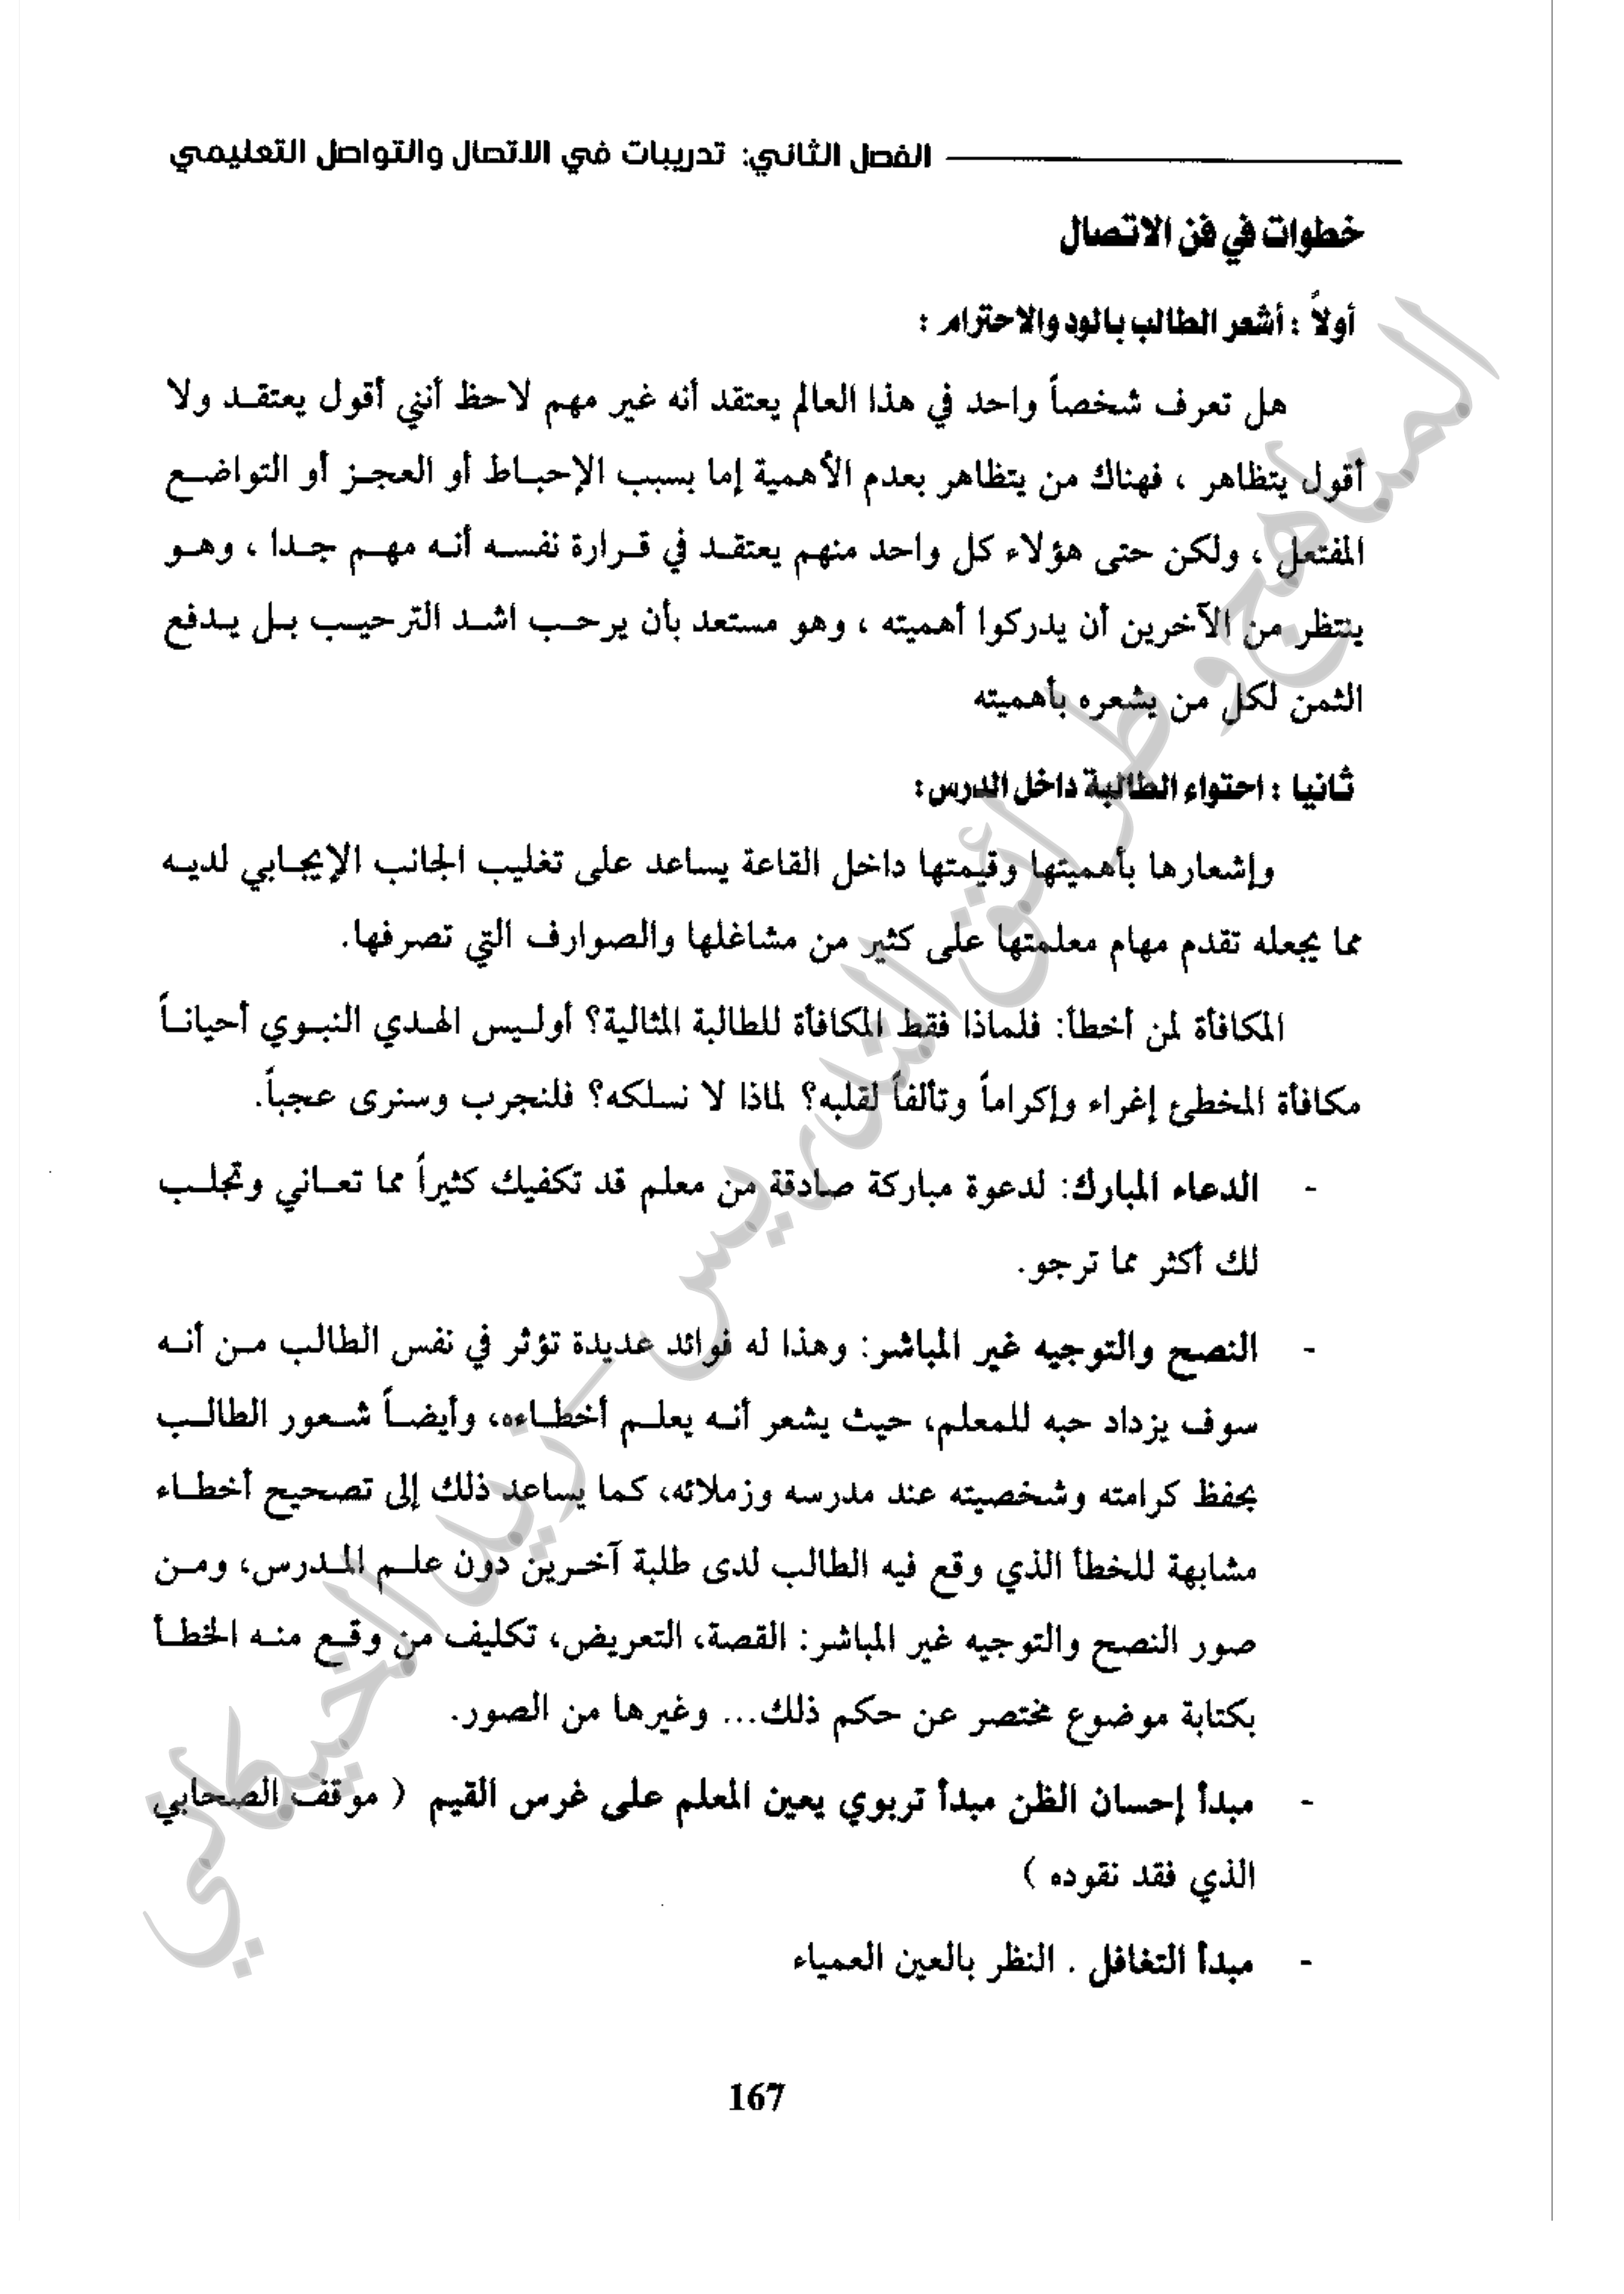 الفصل الثاني: تدريبات في الاتصال والتواصل التعليمي
خطوات في فن الاتصال
أولاً : أشعر الطالب بالود والاحترام :
هل تعرف شخصاً واحد في هذا العالم يعتقد أنه غير مهم لاحظ أنني أقول يعتقد ولا
أقول يتظاهر ، فهناك من يتظاهر بعدم الأهمية إما بسبب الإحباط أو العجز أو التواضع
المفتعل ، ولكن حتى هؤلاء كل واحد منهم يعتقد في قرارة نفسه أنه مهم جدا ، وهو
ينتظر من الآخرين أن يدركوا أهميته ، وهو مستعد بأن يرحب اشد الترحيب بل يدفع
الثمن لكل من يشعره بأهميته
ثانيا : احتواء الطالبة داخل الدرس:
وإشعارها بأهميتها وقيمتها داخل القاعة يساعد على تغليب الجانب الإيجابي لديه
مما يجعله تقدم مهام معلمتها على كثير من مشاغلها والصوارف التي تصرفها.
المكافأة لمن أخطأ: فلماذا فقط المكافأة للطالبة المثالية؟ أوليس الهدي النبوي أحياناً
مكافأة المخطئ إغراء وإكراماً وتألفاً لقلبه؟ لماذا لا نسلكه؟ فلنجرب وسنرى عجباً.
- الدعاء المبارك: لدعوة مباركة صادقة من معلم قد تكفيك كثيراً مما تعاني وتجلب
لك أكثر مما ترجو.
- النصح والتوجيه غير المباشر: وهذا له فوائد عديدة تؤثر في نفس الطالب من أنه
سوف يزداد حبه للمعلم، حيث يشعر أنه يعلم أخطاءه، وأيضاً شعور الطالب
بحفظ كرامته وشخصيته عند مدرسه وزملائه، كما يساعد ذلك إلى تصحيح أخطاء
مشابهة للخطأ الذي وقع فيه الطالب لدى طلبة آخرين دون علم المدرس، ومن
صور النصح والتوجيه غير المباشر: القصة، التعريض، تكليف من وقع منه الخطأ
بكتابة موضوع مختصر عن حكم ذلك... وغيرها من الصور.
- مبدأ إحسان الظن مبدأ تربوي يعين المعلم على غرس القيم ( موقف الصحابي
الذي فقد نقوده )
- مبدأ التغافل . النظر بالعين العمياء
167
المناهج وطرائق التدريس - زيد الخيكاني